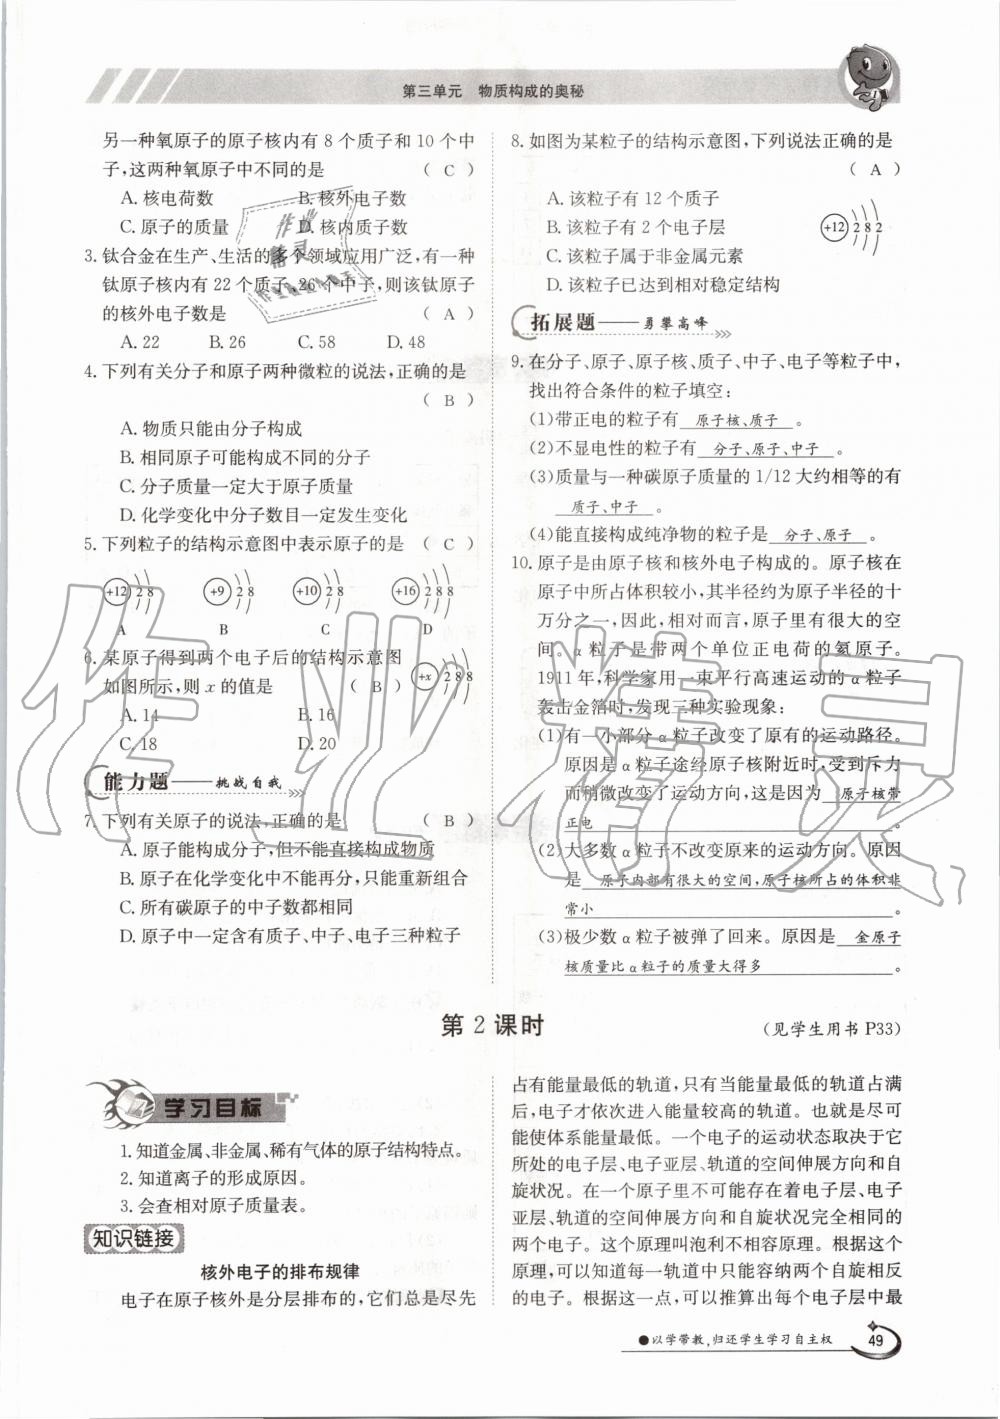 第三单元 物质构成的奥秘
另一种氧原子的原子核内有 8 个质子和 10 个中
子,这两种氧原子中不同的是 ( C )
A. 核电荷数 B. 核外电子数
C. 原子的质量 D. 核内质子数
3. 钛合金在生产、生活的多个领域应用广泛,有一种
钛原子核内有 22 个质子,26 个中子,则该钛原子
的核外电子数是 ( A )
A. 22 B. 26 C. 58 D. 48
4. 下列有关分子和原子两种微粒的说法,正确的是
( B )
A. 物质只能由分子构成
B. 相同原子可能构成不同的分子
C. 分子质量一定大于原子质量
D. 化学变化中分子数目一定发生变化
5. 下列粒子的结构示意图中表示原子的是 ( C )
+12 2 8 +9 2 8 +10 2 8 +16 2 8 8
A B C D
6. 某原子得到两个电子后的结构示意图
如图所示,则 x 的值是 ( B )
+x 2 8 8
A. 14 B. 16
C. 18 D. 20
能力题——挑战自我
7. 下列有关原子的说法,正确的是 ( B )
A. 原子能构成分子,但不能直接构成物质
B. 原子在化学变化中不能再分,只能重新组合
C. 所有碳原子的中子数都相同
D. 原子中一定含有质子、中子、电子三种粒子
8. 如图为某粒子的结构示意图,下列说法正确的是
( A )
A. 该粒子有 12 个质子
B. 该粒子有 2 个电子层
C. 该粒子属于非金属元素
D. 该粒子已达到相对稳定结构
+12 2 8 2
拓展题——勇攀高峰
9. 在分子、原子、原子核、质子、中子、电子等粒子中,
找出符合条件的粒子填空:
(1)带正电的粒子有 原子核、质子 。
(2)不显电性的粒子有 分子、原子、中子 。
(3)质量与一种碳原子质量的 1/12 大约相等的有
质子、中子 。
(4)能直接构成纯净物的粒子是 分子、原子 。
10. 原子是由原子核和核外电子构成的。原子核在
原子中所占体积较小,其半径约为原子半径的十
万分之一,因此,相对而言,原子里有很大的空
间。α 粒子是带两个单位正电荷的氦原子。
1911 年,科学家用一束平行高速运动的 α 粒子
轰击金箔时,发现三种实验现象:
(1)有一小部分 α 粒子改变了原有的运动路径。
原因是 α 粒子途经原子核附近时,受到斥力
而稍微改变了运动方向,这是因为 原子核带
正电 。
(2)大多数 α 粒子不改变原来的运动方向。原因
是 原子内部有很大的空间,原子核所占的体积非
常小 。
(3)极少数 α 粒子被弹了回来。原因是 金原子
核质量比 α 粒子的质量大得多 。
第 2 课时 (见学生用书 P33)
学习目标
1. 知道金属、非金属、稀有气体的原子结构特点。
2. 知道离子的形成原因。
3. 会查相对原子质量表。
知识链接
核外电子的排布规律
电子在原子核外是分层排布的,它们总是尽先
占有能量最低的轨道,只有当能量最低的轨道占满
后,电子才依次进入能量较高的轨道。也就是尽可
能使体系能量最低。一个电子的运动状态取决于它
所处的电子层、电子亚层、轨道的空间伸展方向和自
旋状况。在一个原子里不可能存在着电子层、电子
亚层、轨道的空间伸展方向和自旋状况完全相同的
两个电子。这个原理叫泡利不相容原理。根据这个
原理,可以知道每一轨道中只能容纳两个自旋相反
的电子。根据这一点,可以推算出每个电子层中最
●以学带教,归还学生学习自主权 49
作业精灵